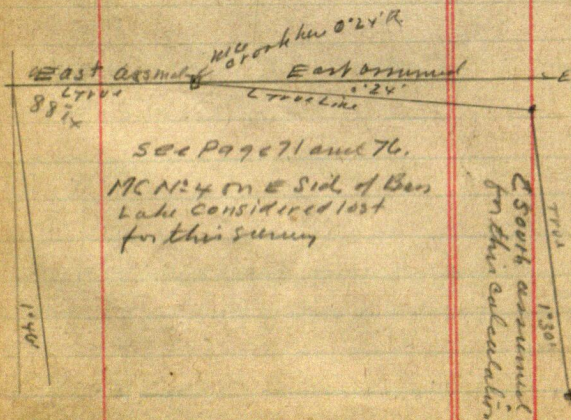 MC
crook here 0°24' R
East Assmd
East assumed
E
True
True Line
0°24'
88
See Page 71 and 76.
MC No 4 on E Side of Bass
Lake Considered lost
for this survey
1°40'
True
1°30'
E South assumed
for this calculation